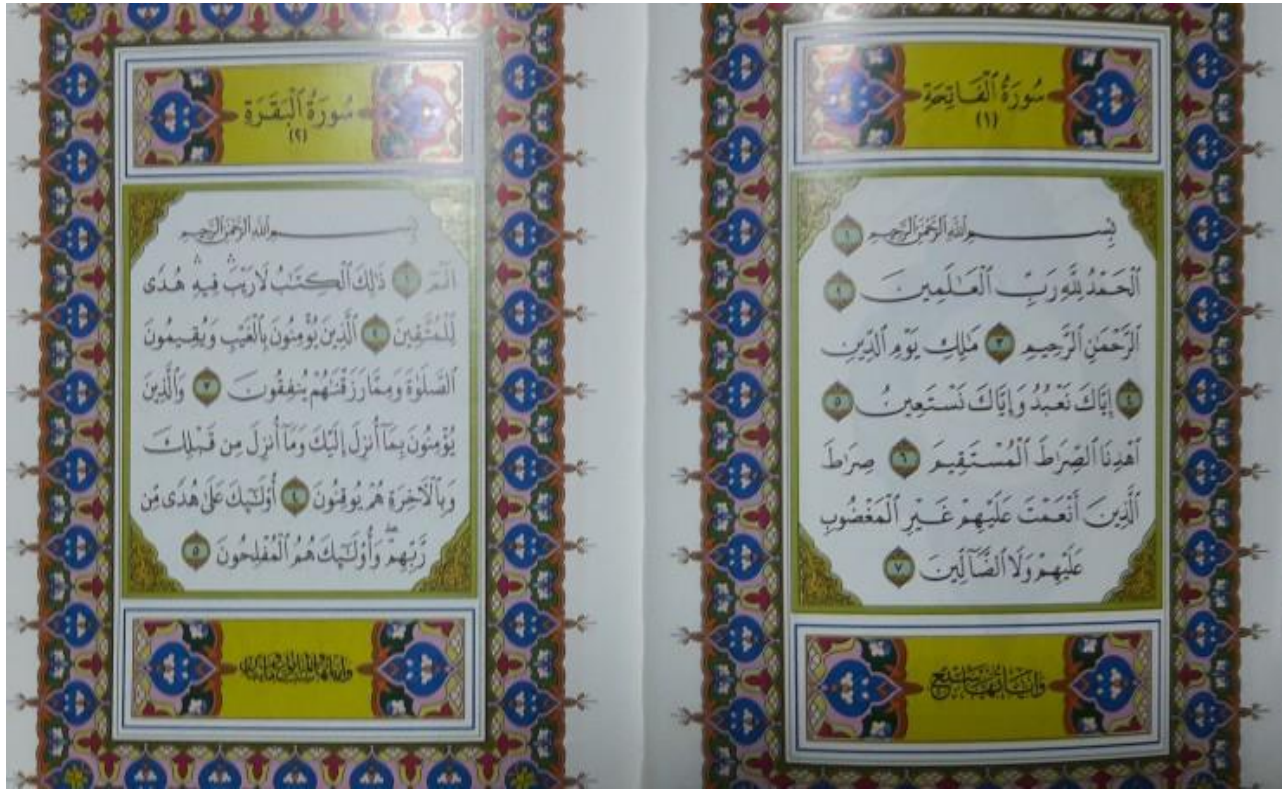 سُورَةُ ٱلْفَاتِحَةِ
(١)
بِسْمِ ٱللَّهِ ٱلرَّحْمَٰنِ ٱلرَّحِيمِ ١
ٱلْحَمْدُ لِلَّهِ رَبِّ ٱلْعَٰلَمِينَ ٢
ٱلرَّحْمَٰنِ ٱلرَّحِيمِ ٣ مَٰلِكِ يَوْمِ ٱلدِّينِ
٤ إِيَّاكَ نَعْبُدُ وَإِيَّاكَ نَسْتَعِينُ ٥
ٱهْدِنَا ٱلصِّرَٰطَ ٱلْمُسْتَقِيمَ ٦ صِرَٰطَ
ٱلَّذِينَ أَنْعَمْتَ عَلَيْهِمْ غَيْرِ ٱلْمَغْضُوبِ
عَلَيْهِمْ وَلَا ٱلضَّآلِّينَ ٧
وآياتها سبع
سُورَةُ ٱلْبَقَرَةِ
(٢)
بِسْمِ ٱللَّهِ ٱلرَّحْمَٰنِ ٱلرَّحِيمِ
الٓمٓ ١ ذَٰلِكَ ٱلْكِتَٰبُ لَا رَيْبَ ۛ فِيهِ ۛ هُدًى
لِّلْمُتَّقِينَ ٢ ٱلَّذِينَ يُؤْمِنُونَ بِٱلْغَيْبِ وَيُقِيمُونَ
ٱلصَّلَوٰةَ وَمِمَّا رَزَقْنَٰهُمْ يُنفِقُونَ ٣ وَٱلَّذِينَ
يُؤْمِنُونَ بِمَآ أُنزِلَ إِلَيْكَ وَمَآ أُنزِلَ مِن قَبْلِكَ
وَبِٱلْءَاخِرَةِ هُمْ يُوقِنُونَ ٤ أُو۟لَٰٓئِكَ عَلَىٰ هُدًى مِّن
رَّبِّهِمْ ۖ وَأُو۟لَٰٓئِكَ هُمُ ٱلْمُفْلِحُونَ ٥